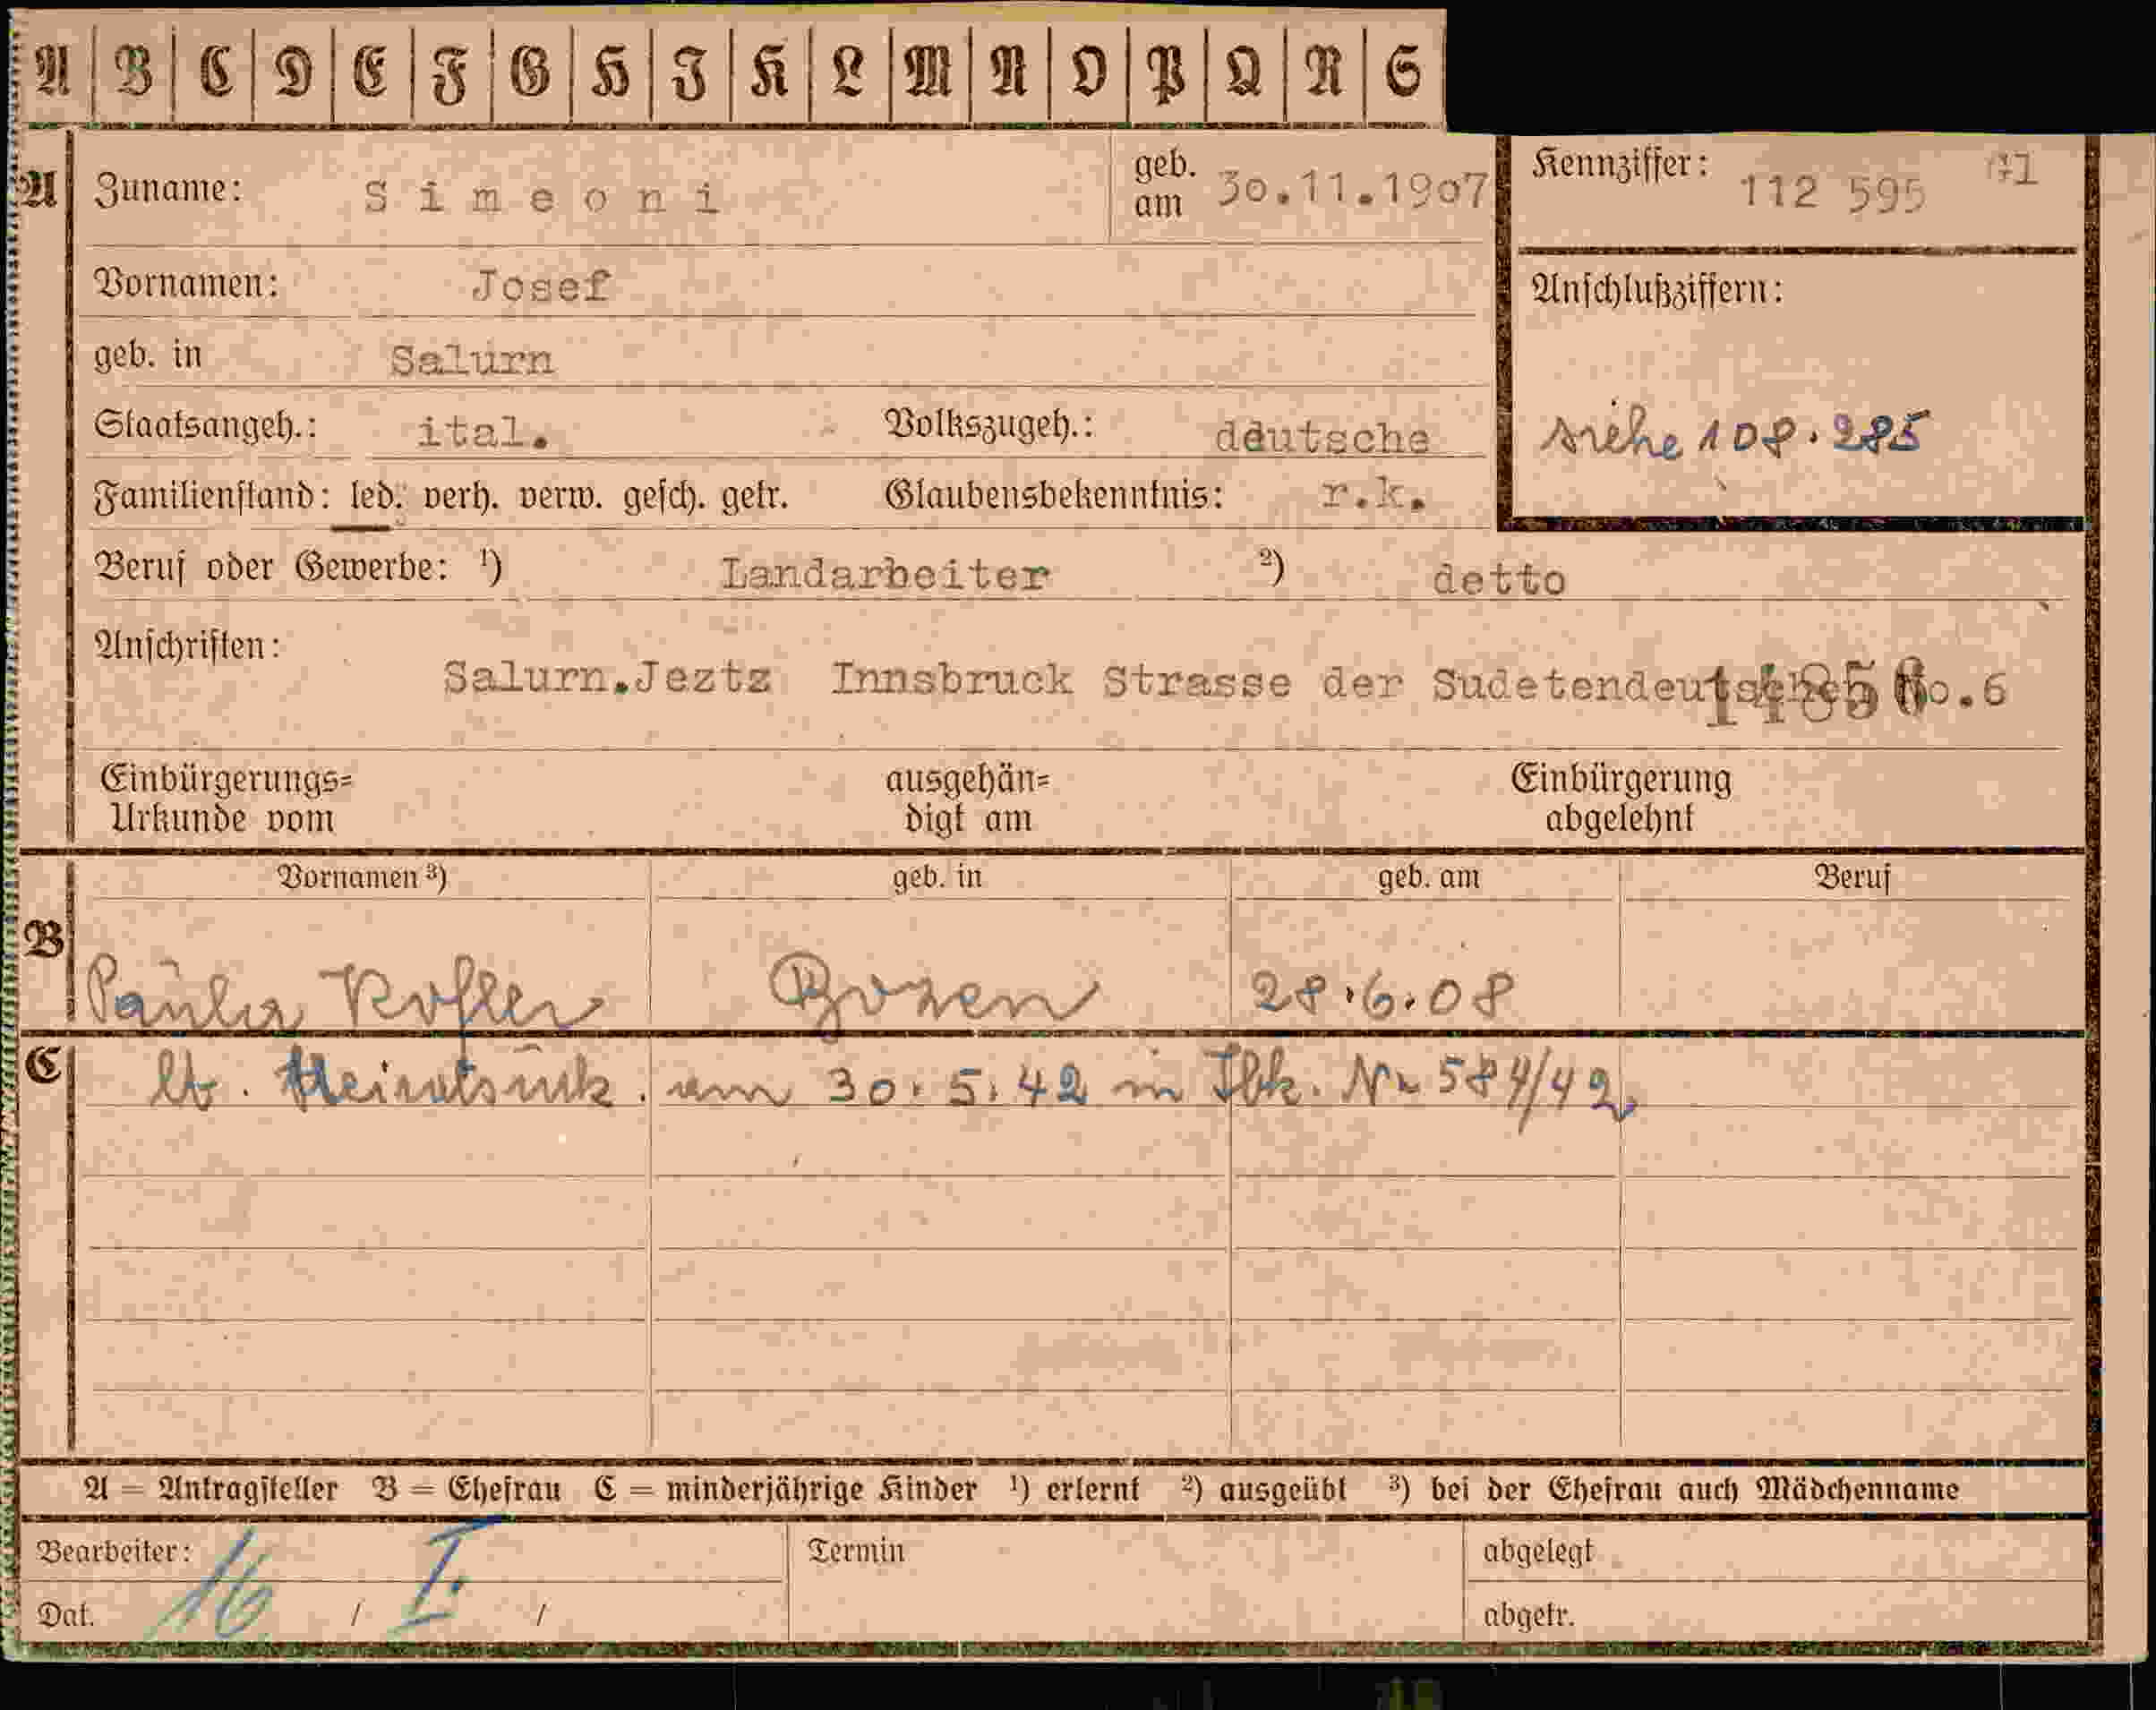 A B C D E F G H J K L M N O P Q R S
A Zuname: Simeoni geb. am 30.11.1907 Kennziffer: 112 595 71
Vornamen: Josef Anschlußziffern:
geb. in Salurn
Staatsangeh.: ital. Volkszugeh.: deutsche siehe 108.285
Familienstand: led. verh. verw. gesch. getr. Glaubensbekenntnis: r.k.
Beruf oder Gewerbe: ¹) Landarbeiter ²) detto
Anschriften:
Salurn.Jeztz Innsbruck Strasse der Sudetendeutschen No.6
Einbürgerungs= ausgehän= Einbürgerung
Urkunde vom digt am abgelehnt
Vornamen ³) geb. in geb. am Beruf
B Paula Kofler Bozen 28.6.08
C lt. Heiratsurk. vom 30.5.42 in Ibk. Nr 584/42
A = Antragsteller B = Ehefrau C = minderjährige Kinder ¹) erlernt ²) ausgeübt ³) bei der Ehefrau auch Mädchenname
Bearbeiter: Termin abgelegt
16 I.
Dat. / / abgetr.